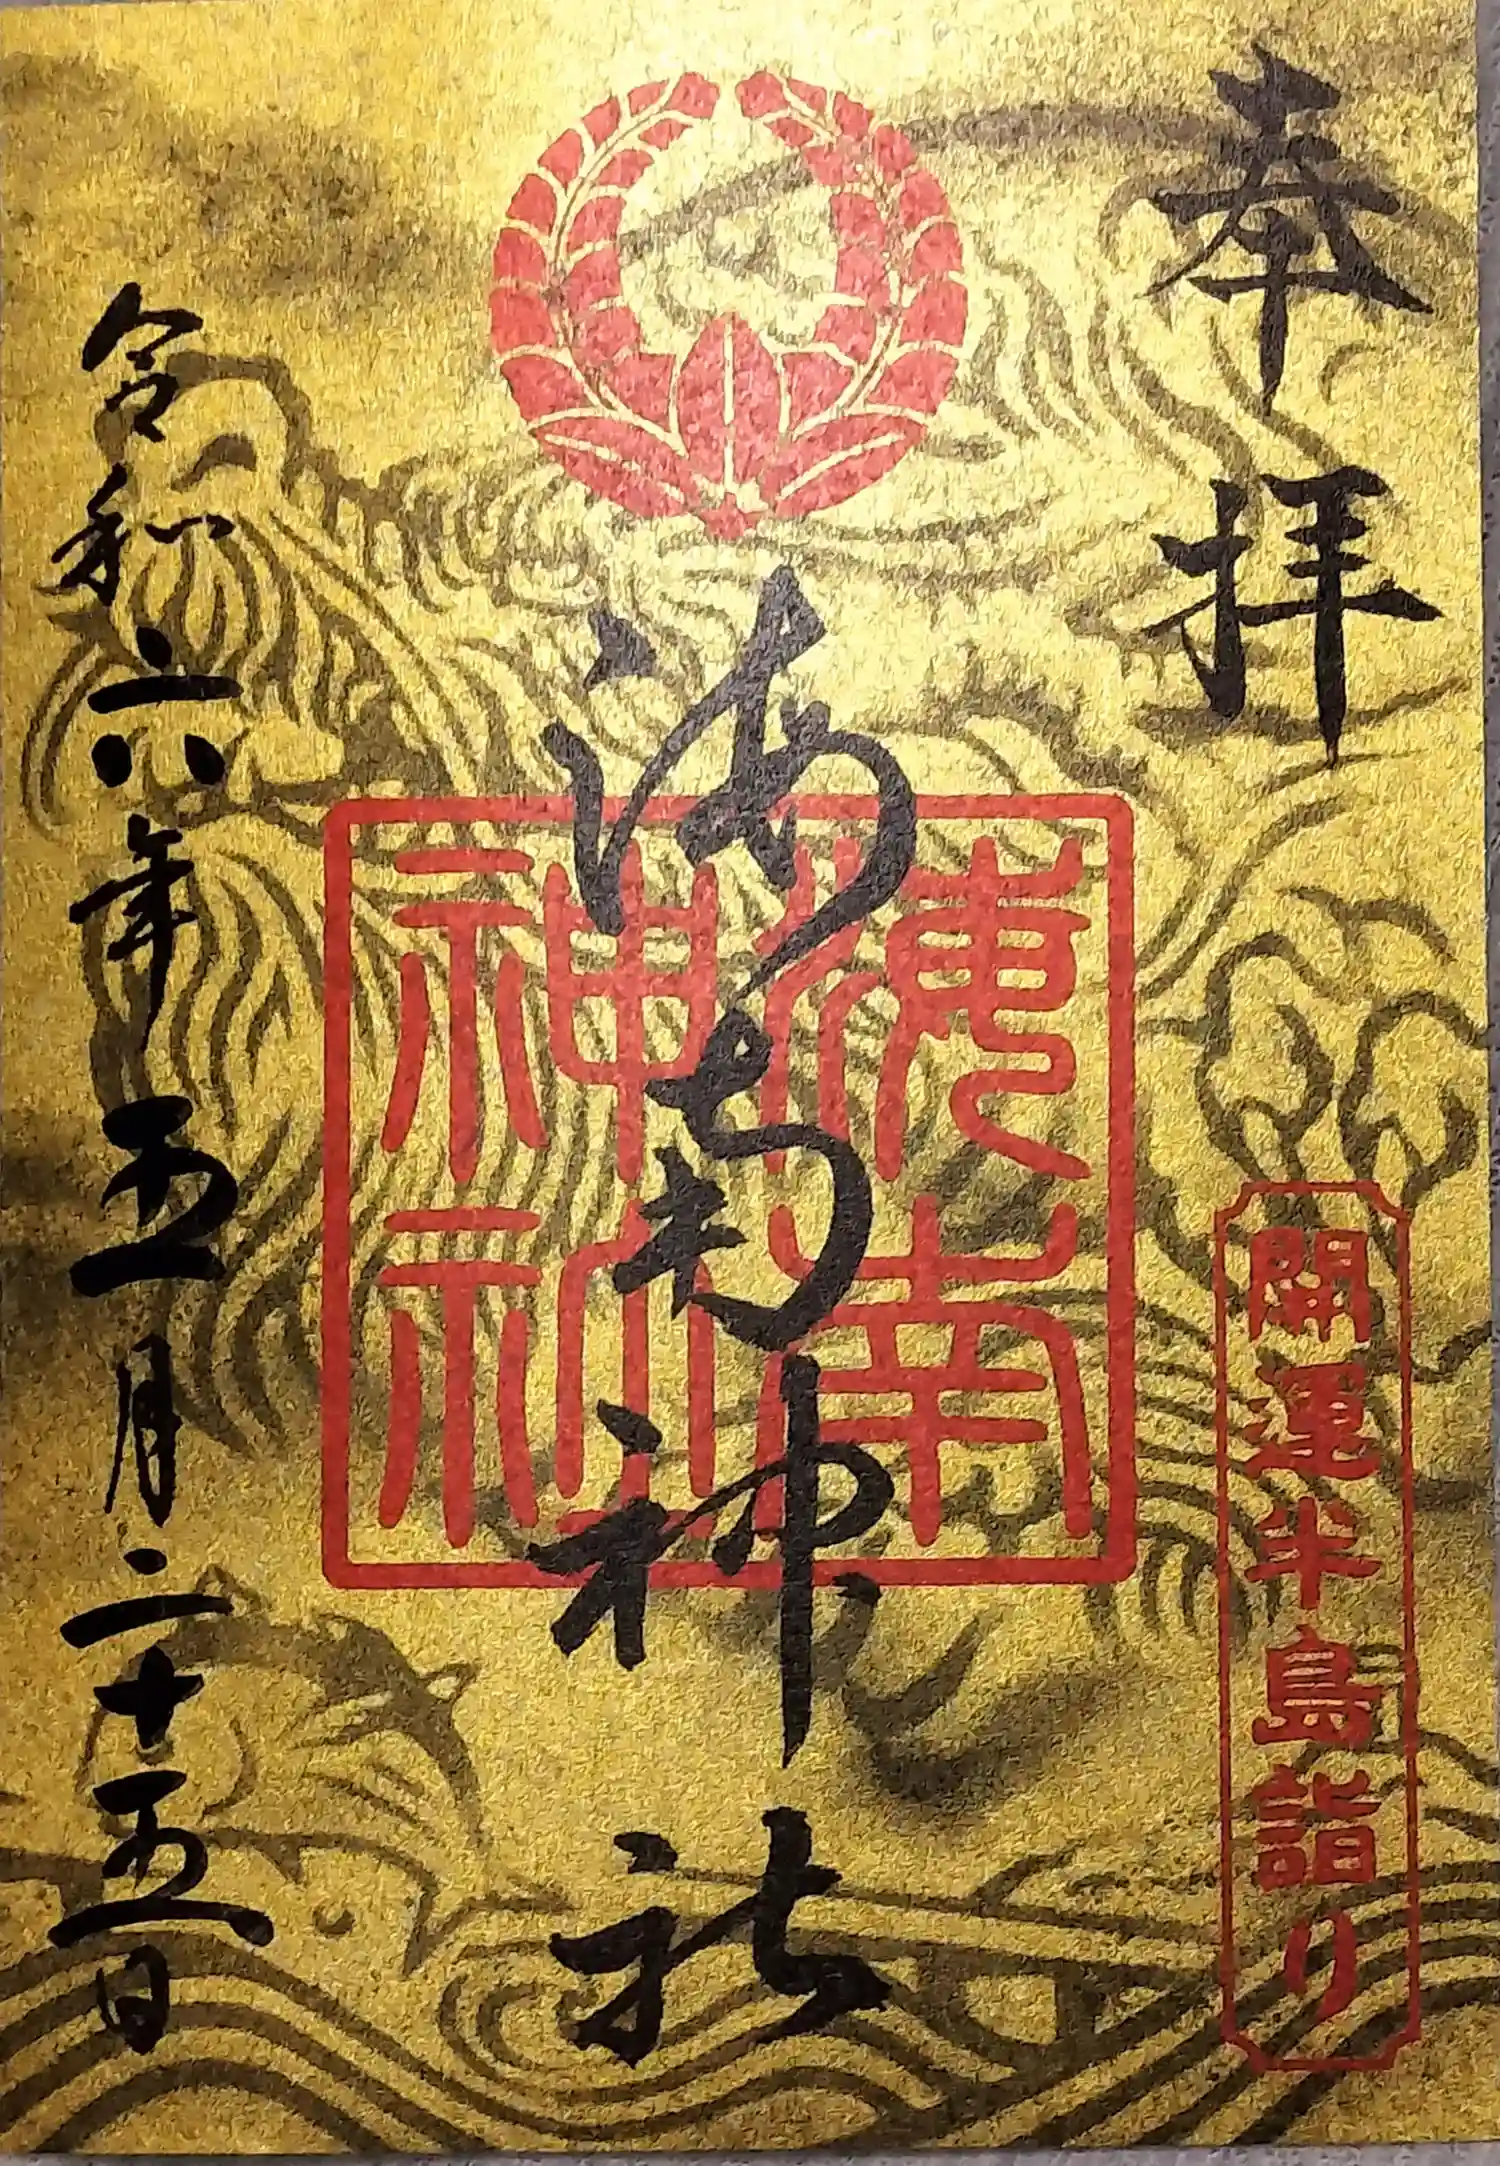 奉拝
開運半島詣り
海南神社
海南神社
令和六年五月二十五日